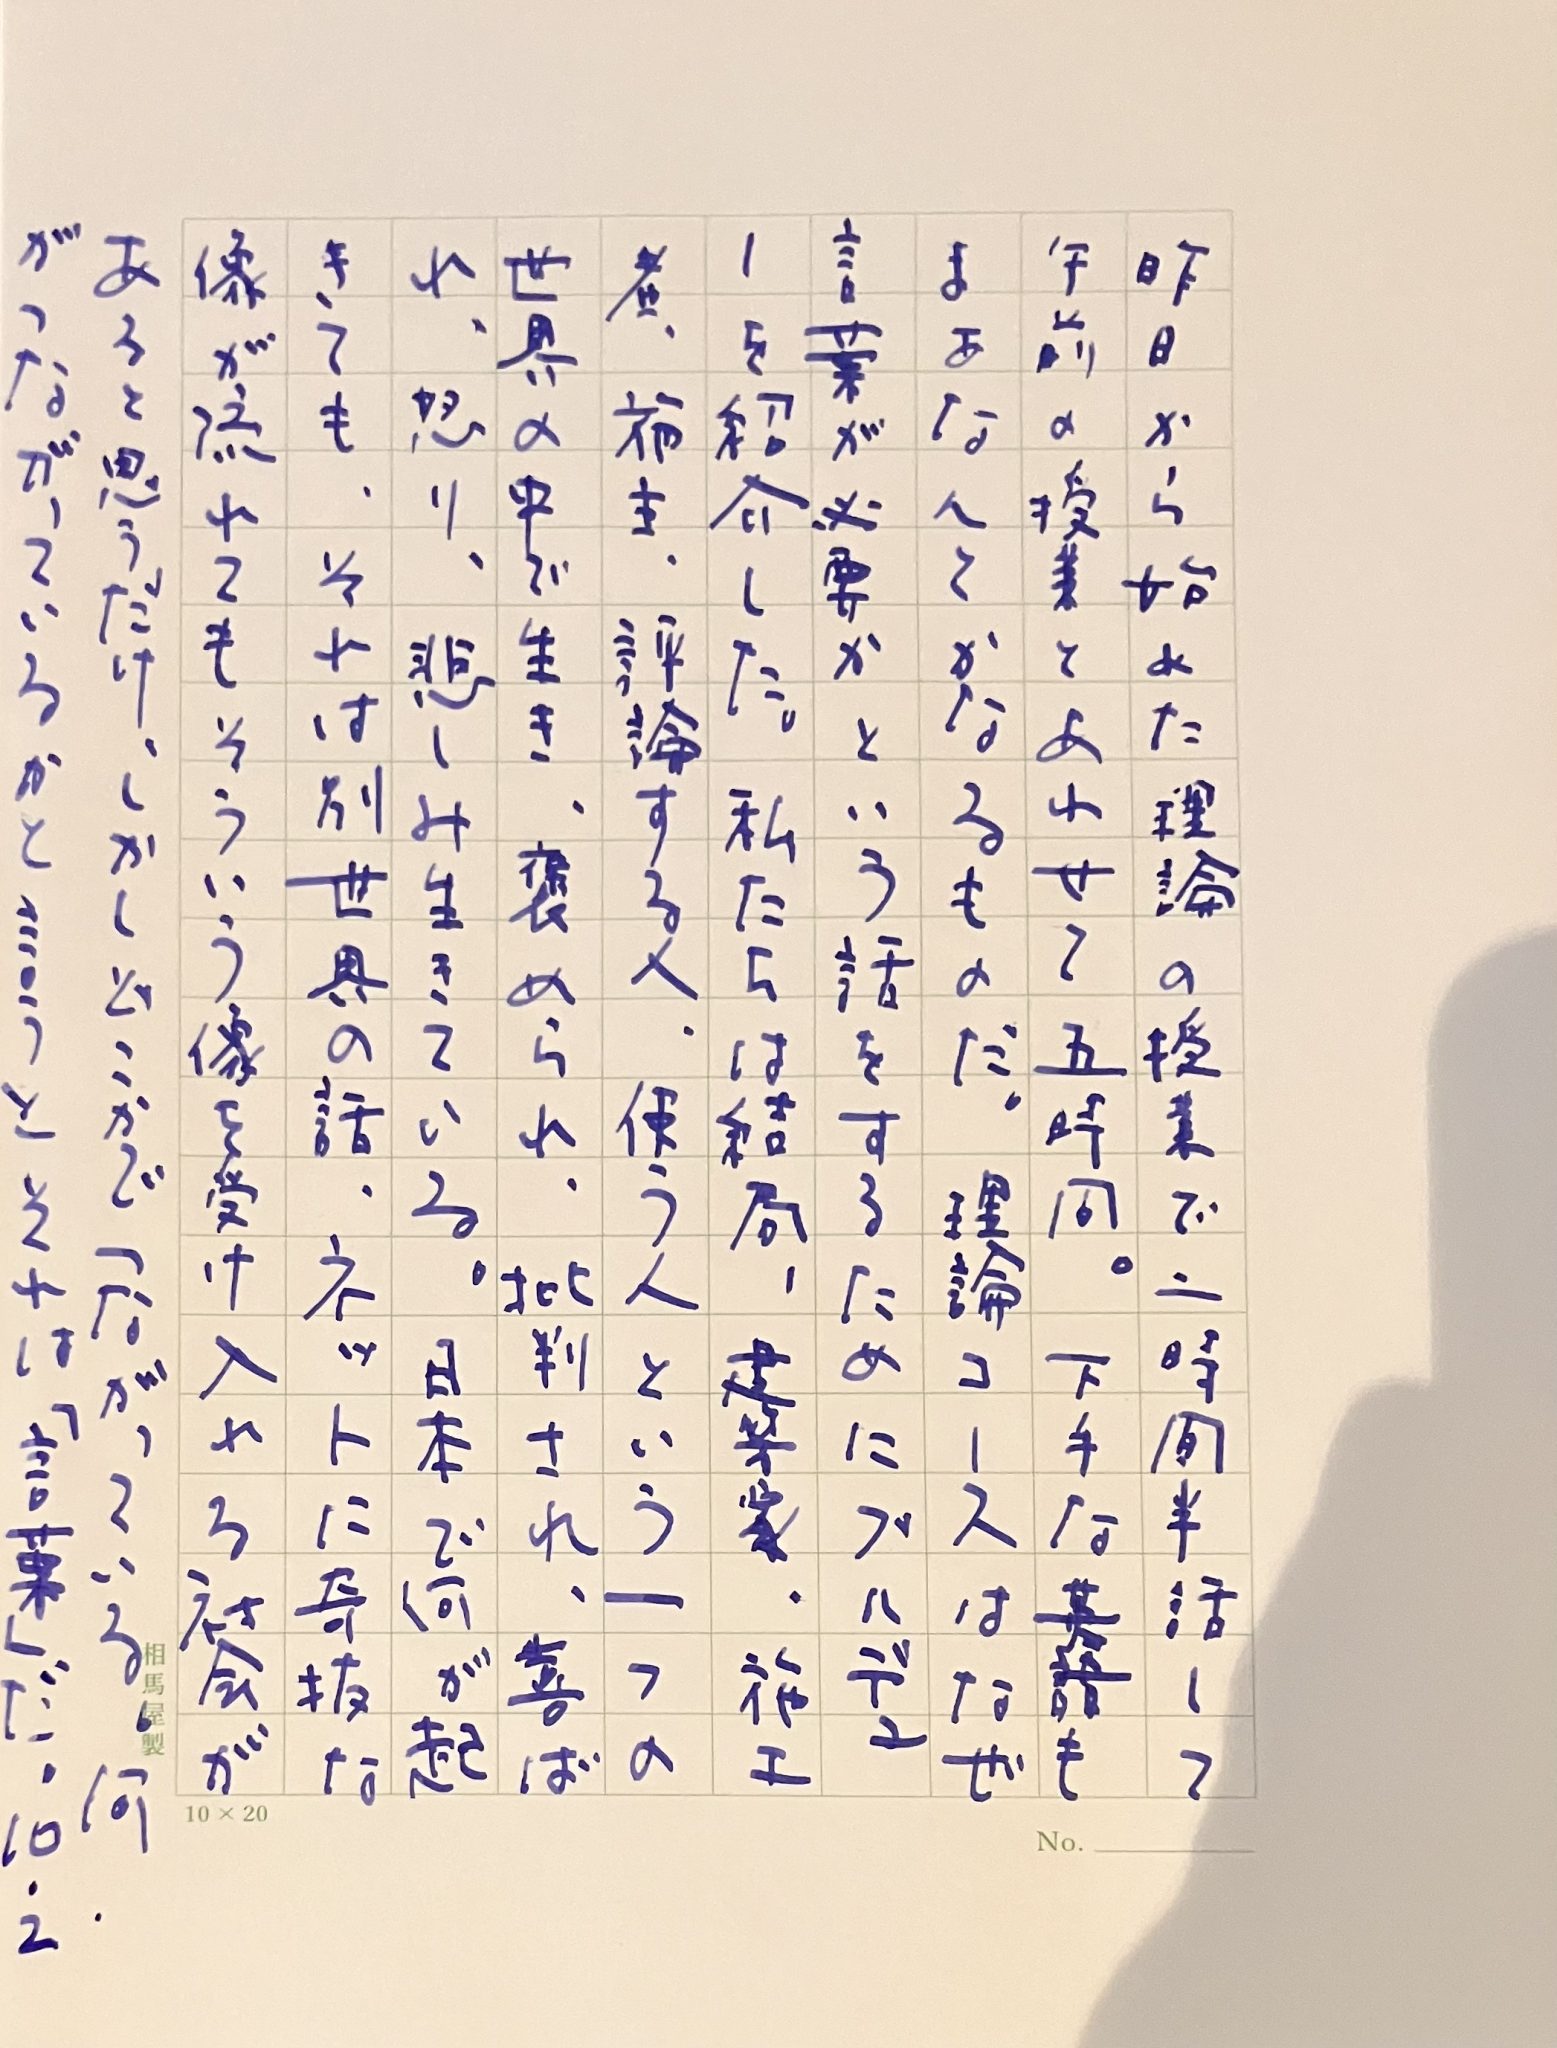 昨日から始めた理論の授業で二時間半話して
午前の授業とあわせて五時間。下手な英語も
まあなんとかなるものだ。理論コースはなぜ
言葉が必要かという話をするためにブルデュ
ーを紹介した。私たちは結局、建築家、施工
者、施主、評論する人、使う人という一つの
世界の中で生き、褒められ、批判され、喜ば
れ、怒り、悲しみ生きている。日本で何が起
きても、それは別世界の話、ネットに奇抜な
像が流れてもそういう像を受け入れる社会が
あると思うだけ、しかしどこかでつながっている。何
がつながっているかと言うとそれは「言葉」だ。10.2.
相馬屋製
10×20
No.